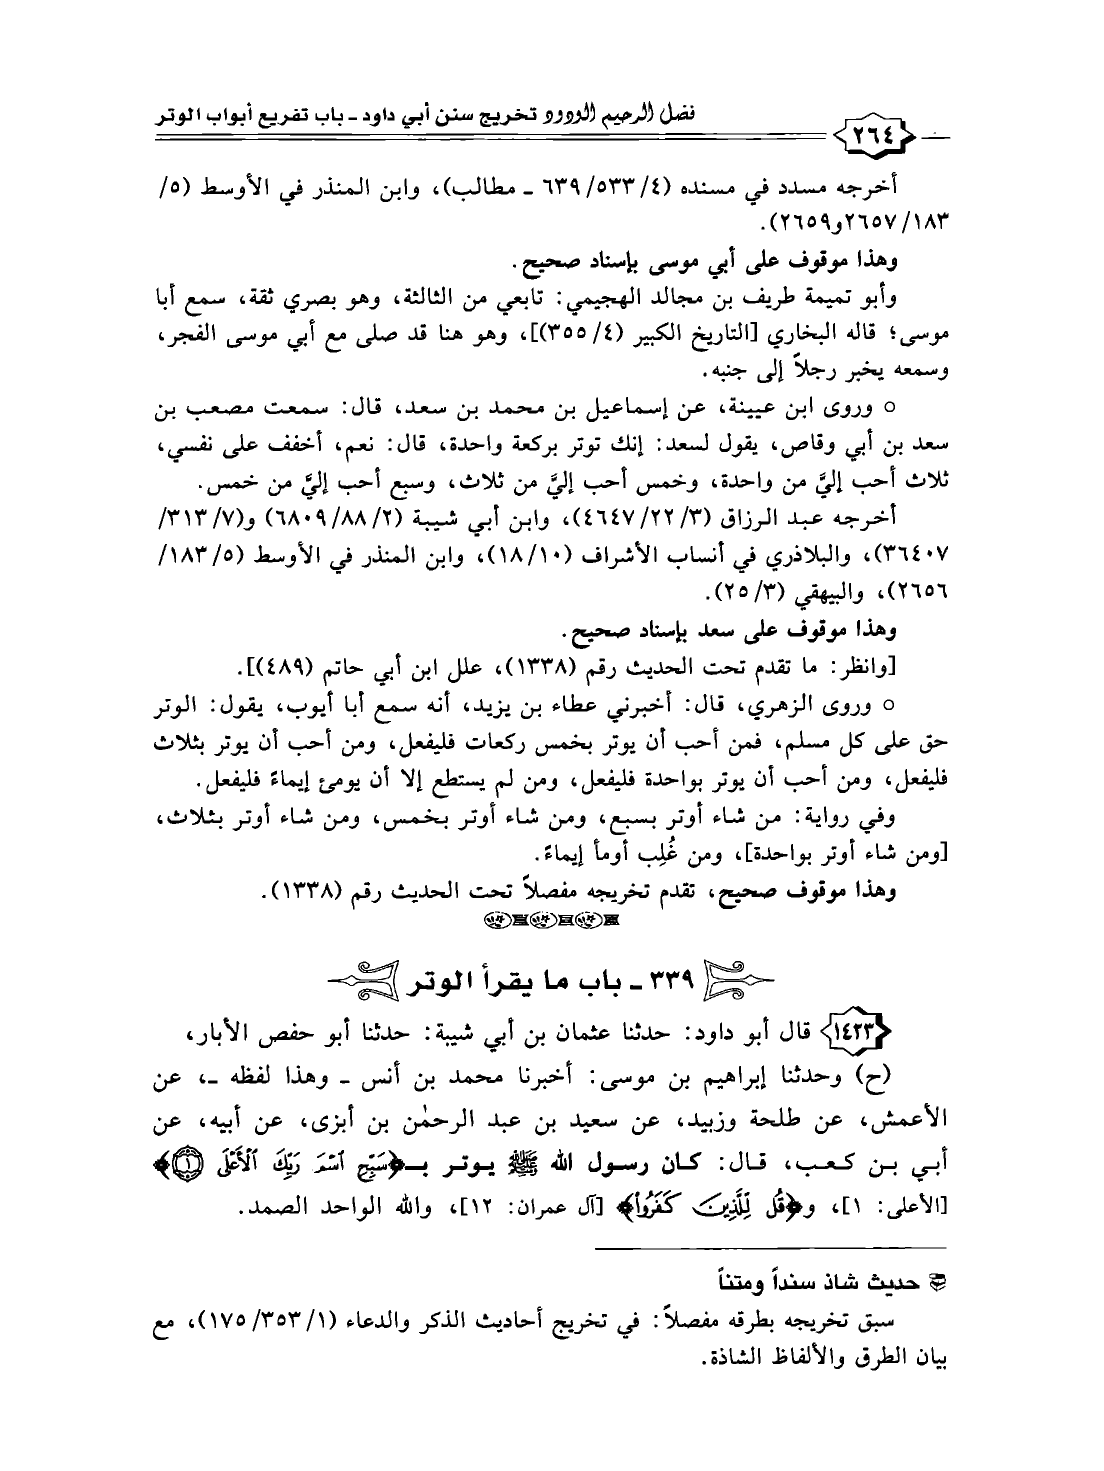 فضل الرحيم الودود تخريج سنن أبي داود ـ باب تفريع أبواب الوتر
٢٦٤
أخرجه مسدد في مسنده (٤/ ٥٣٣/ ٦٣٩ ـ مطالب)، وابن المنذر في الأوسط (٥/
١٨٣/ ٢٦٥٧و٢٦٥٩).
وهذا موقوف على أبي موسى بإسناد صحيح.
وأبو تميمة طريف بن مجالد الهجيمي: تابعي من الثالثة، وهو بصري ثقة، سمع أبا
موسى؛ قاله البخاري [التاريخ الكبير (٤/ ٣٥٥)]، وهو هنا قد صلى مع أبي موسى الفجر،
وسمعه يخبر رجلاً إلى جنبه.
○ وروى ابن عيينة، عن إسماعيل بن محمد بن سعد، قال: سمعت مصعب بن
سعد بن أبي وقاص، يقول لسعد: إنك توتر بركعة واحدة، قال: نعم، أخفف على نفسي،
ثلاث أحب إليَّ من واحدة، وخمس أحب إليَّ من ثلاث، وسبع أحب إليَّ من خمس.
أخرجه عبد الرزاق (٣/ ٢٢/ ٤٦٤٧)، وابن أبي شيبة (٢/ ٨٨/ ٦٨٠٩) و(٧/ ٣١٣/
٣٦٤٠٧)، والبلاذري في أنساب الأشراف (١٠/ ١٨)، وابن المنذر في الأوسط (٥/ ١٨٣/
٢٦٥٦)، والبيهقي (٣/ ٢٥).
وهذا موقوف على سعد بإسناد صحيح.
[وانظر: ما تقدم تحت الحديث رقم (١٣٣٨)، علل ابن أبي حاتم (٤٨٩)].
○ وروى الزهري، قال: أخبرني عطاء بن يزيد، أنه سمع أبا أيوب، يقول: الوتر
حق على كل مسلم، فمن أحب أن يوتر بخمس ركعات فليفعل، ومن أحب أن يوتر بثلاث
فليفعل، ومن أحب أن يوتر بواحدة فليفعل، ومن لم يستطع إلا أن يومئ إيماءً فليفعل.
وفي رواية: من شاء أوتر بسبع، ومن شاء أوتر بخمس، ومن شاء أوتر بثلاث،
[ومن شاء أوتر بواحدة]، ومن غُلِب أومأ إيماءً.
وهذا موقوف صحيح، تقدم تخريجه مفصلاً تحت الحديث رقم (١٣٣٨).
٣٣٩ ـ باب ما يقرأ الوتر
١٤٢٣ قال أبو داود: حدثنا عثمان بن أبي شيبة: حدثنا أبو حفص الأبار،
(ح) وحدثنا إبراهيم بن موسى: أخبرنا محمد بن أنس ـ وهذا لفظه ـ، عن
الأعمش، عن طلحة وزبيد، عن سعيد بن عبد الرحمٰن بن أبزى، عن أبيه، عن
أبي بن كعب، قال: كان رسول الله ﷺ يوتر بـ﴿سَبِّحِ ٱسْمَ رَبِّكَ ٱلْأَعْلَى ١﴾
[الأعلى: ١]، و﴿قُل لِّلَّذِينَ كَفَرُوا۟﴾ [آل عمران: ١٢]، والله الواحد الصمد.
حديث شاذ سنداً ومتناً
سبق تخريجه بطرقه مفصلاً: في تخريج أحاديث الذكر والدعاء (١/ ٣٥٣/ ١٧٥)، مع
بيان الطرق والألفاظ الشاذة.